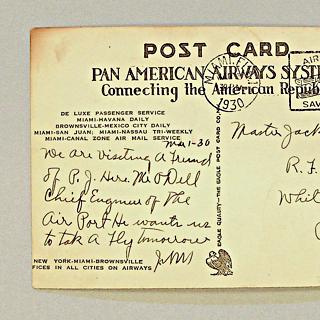 POST CARD
PAN AMERICAN AIRWAYS SYST
Connecting the American Repub
MIAMI, FL
1930
AIR
SAV
DE LUXE PASSENGER SERVICE
MIAMI-HAVANA DAILY
BROWNSVILLE-MEXICO CITY DAILY
MIAMI-SAN JUAN; MIAMI-NASSAU TRI-WEEKLY
MIAMI-CANAL ZONE AIR MAIL SERVICE
Mar 1-30
We are visiting a friend
of P. J. Here. Mr O'Dell
Chief Engineer of the
Air Port He wants us
to tak a fly tomorrow
NEW YORK-MIAMI-BROWNSVILLE
FICES IN ALL CITIES ON AIRWAYS
EAGLE QUALITY—THE EAGLE POST CARD CO.
Master Jack
R.F.
Whit